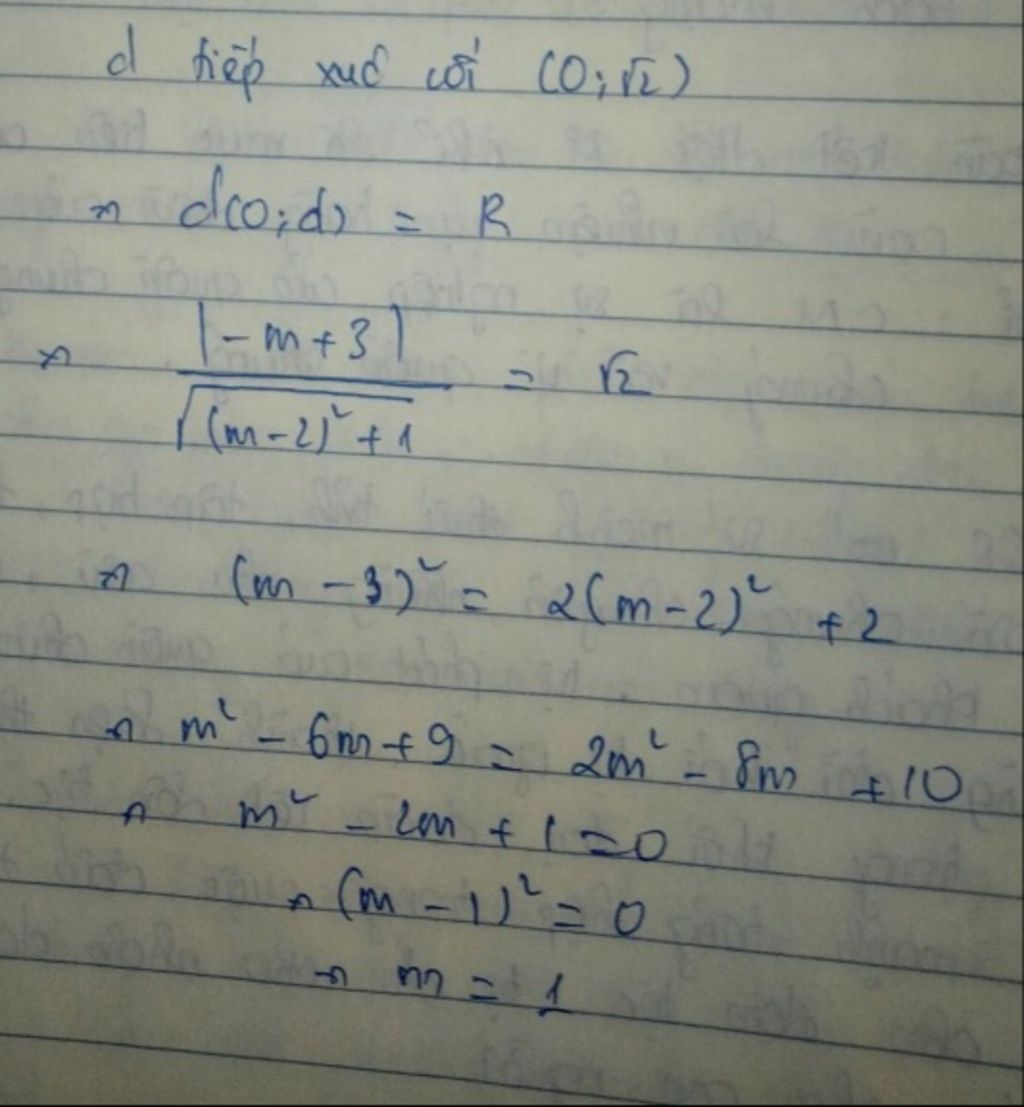 d tiếp xúc với (O;√2)
⇒ d(O;d) = R
⇒ |-m+3| / √((m-2)² + 1) = √2
⇒ (m - 3)² = 2(m-2)² + 2
⇒ m² - 6m + 9 = 2m² - 8m + 10
⇒ m² - 2m + 1 = 0
⇒ (m - 1)² = 0
⇒ m = 1